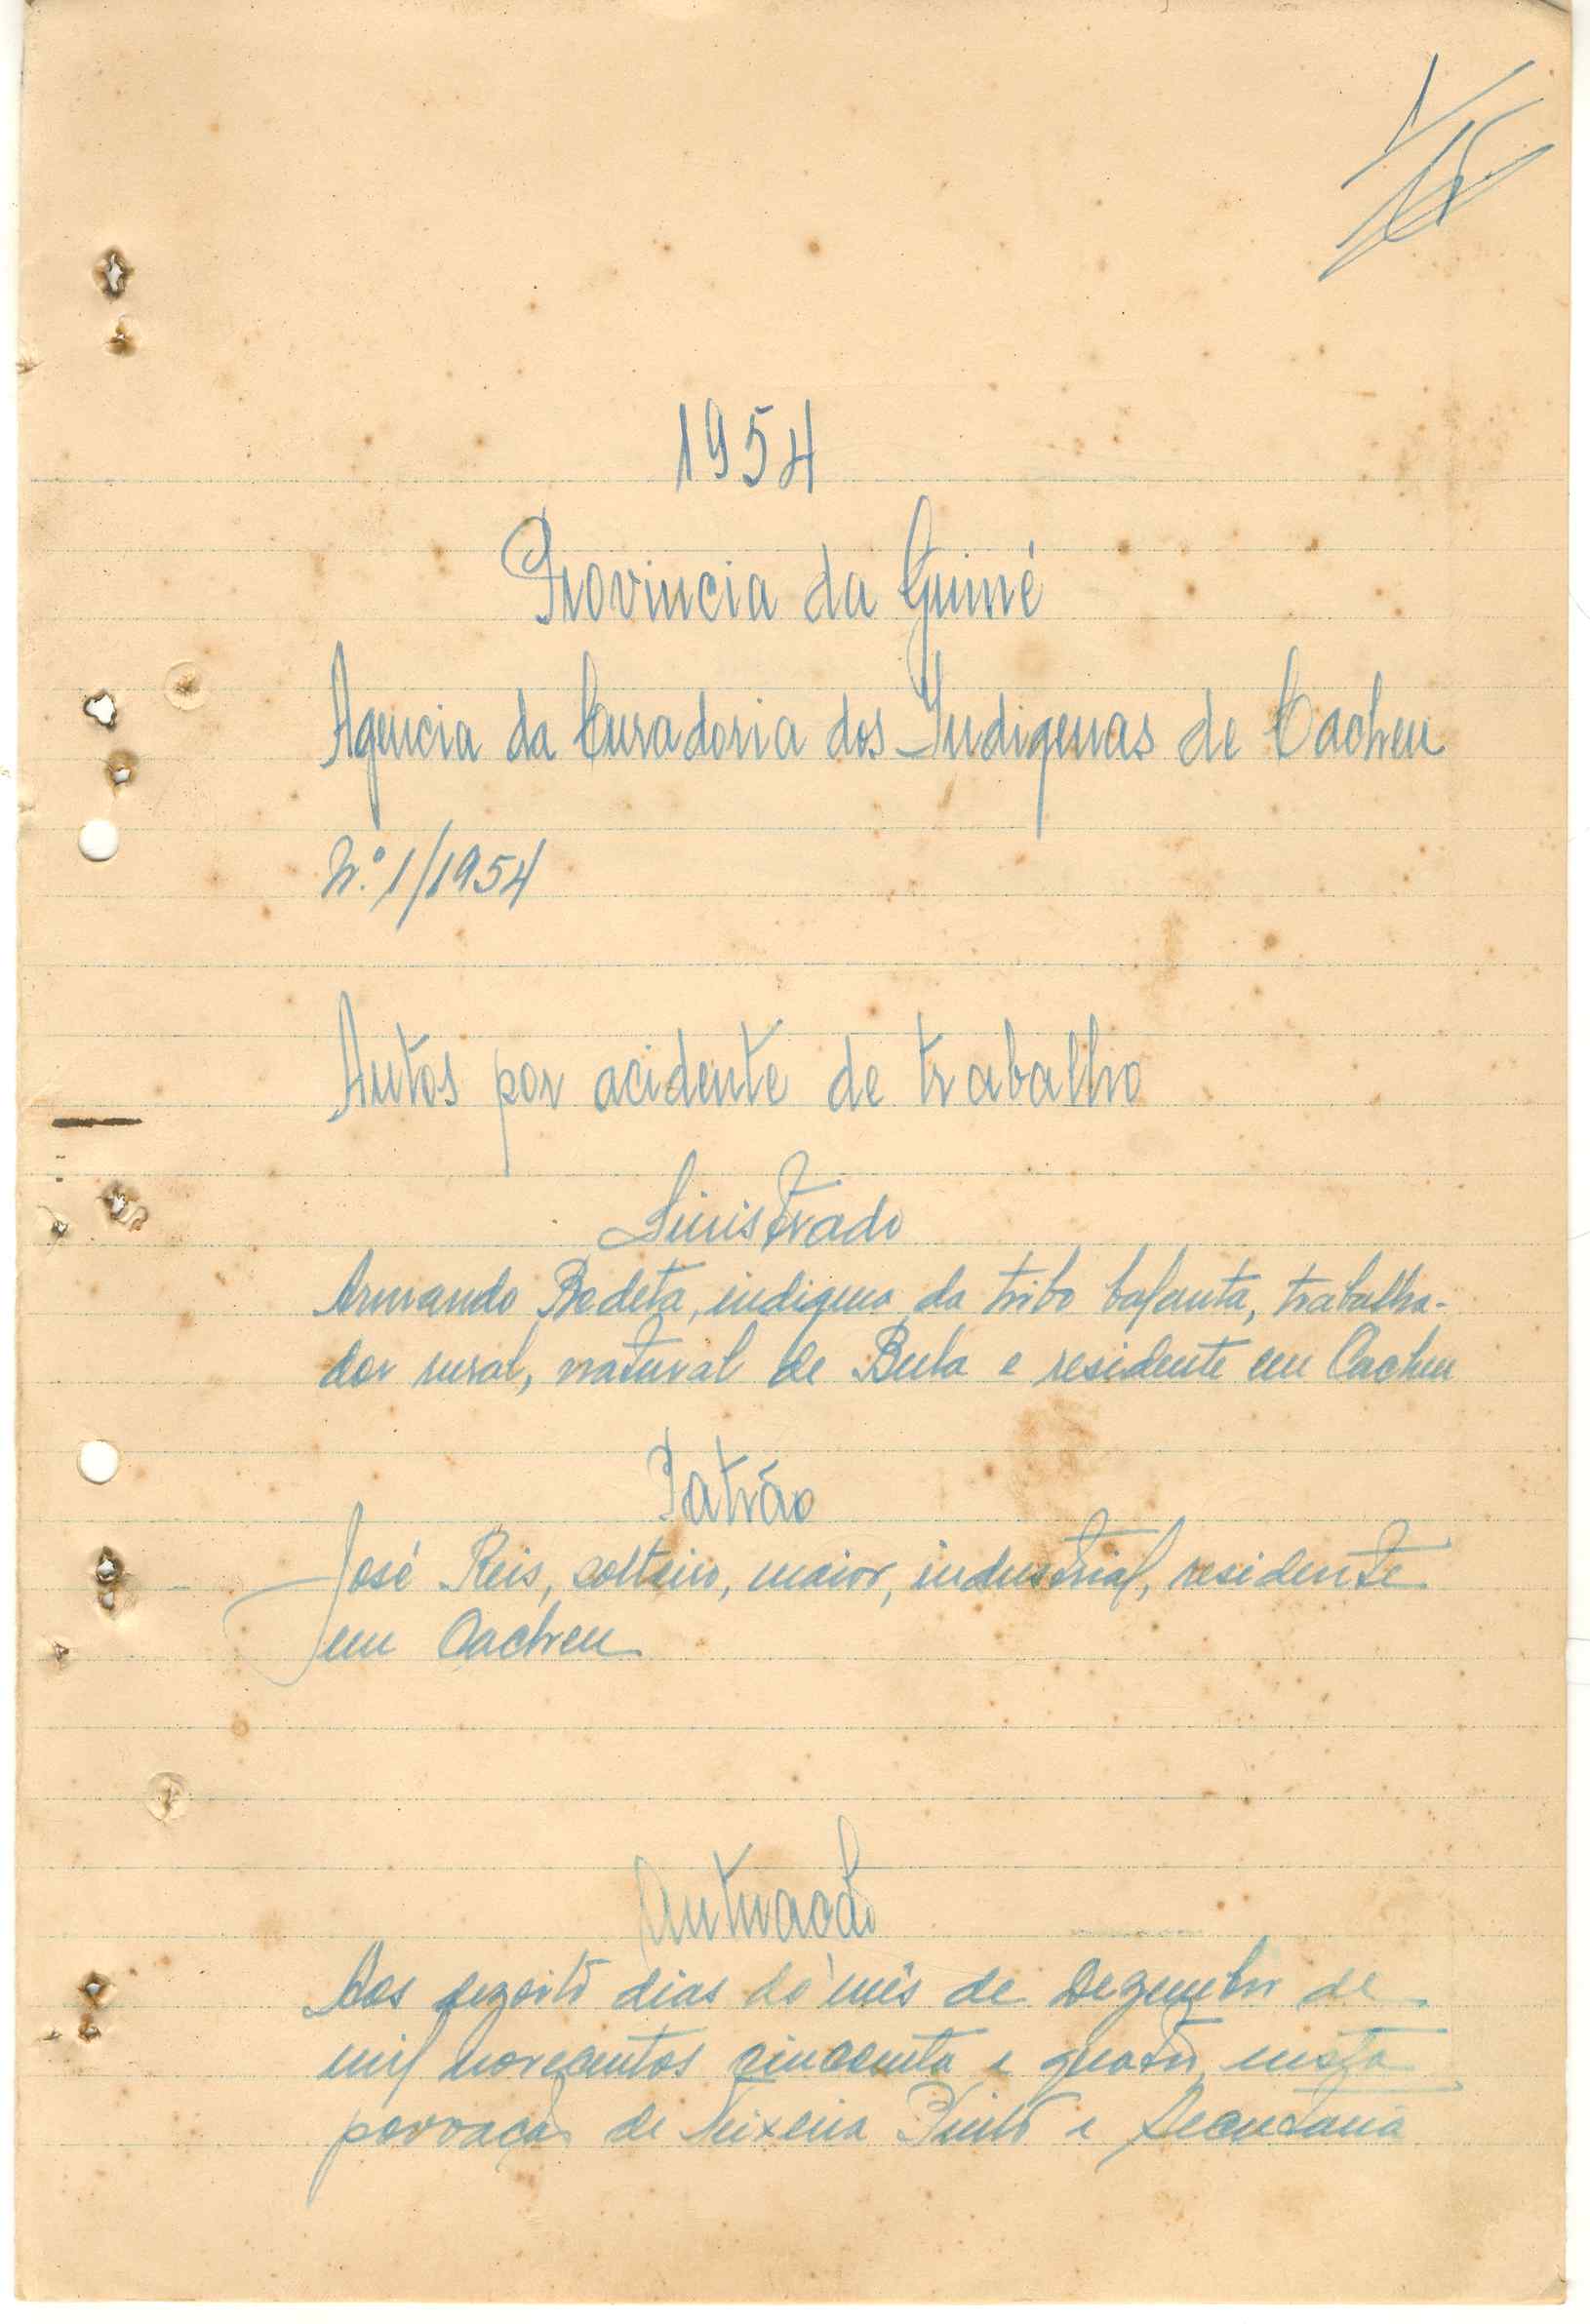 1
1954
Provincia da Guiné
Agencia da Curadoria dos Indigenas de Cacheu
N.º 1/1954
Autos por acidente de trabalho
Sinistrado
Armando Bedeta, indigena da tribo balanta, trabalha-
dor rural, natural de Bula e residente em Cacheu
Patrão
José Reis, solteiro, maior, industrial, residente
em Cacheu
Autuação
Aos dezoito dias do mês de Dezembro de
mil novecentos cincoenta e quatro, nesta
povoação de Teixeira Pinto e Secretaria